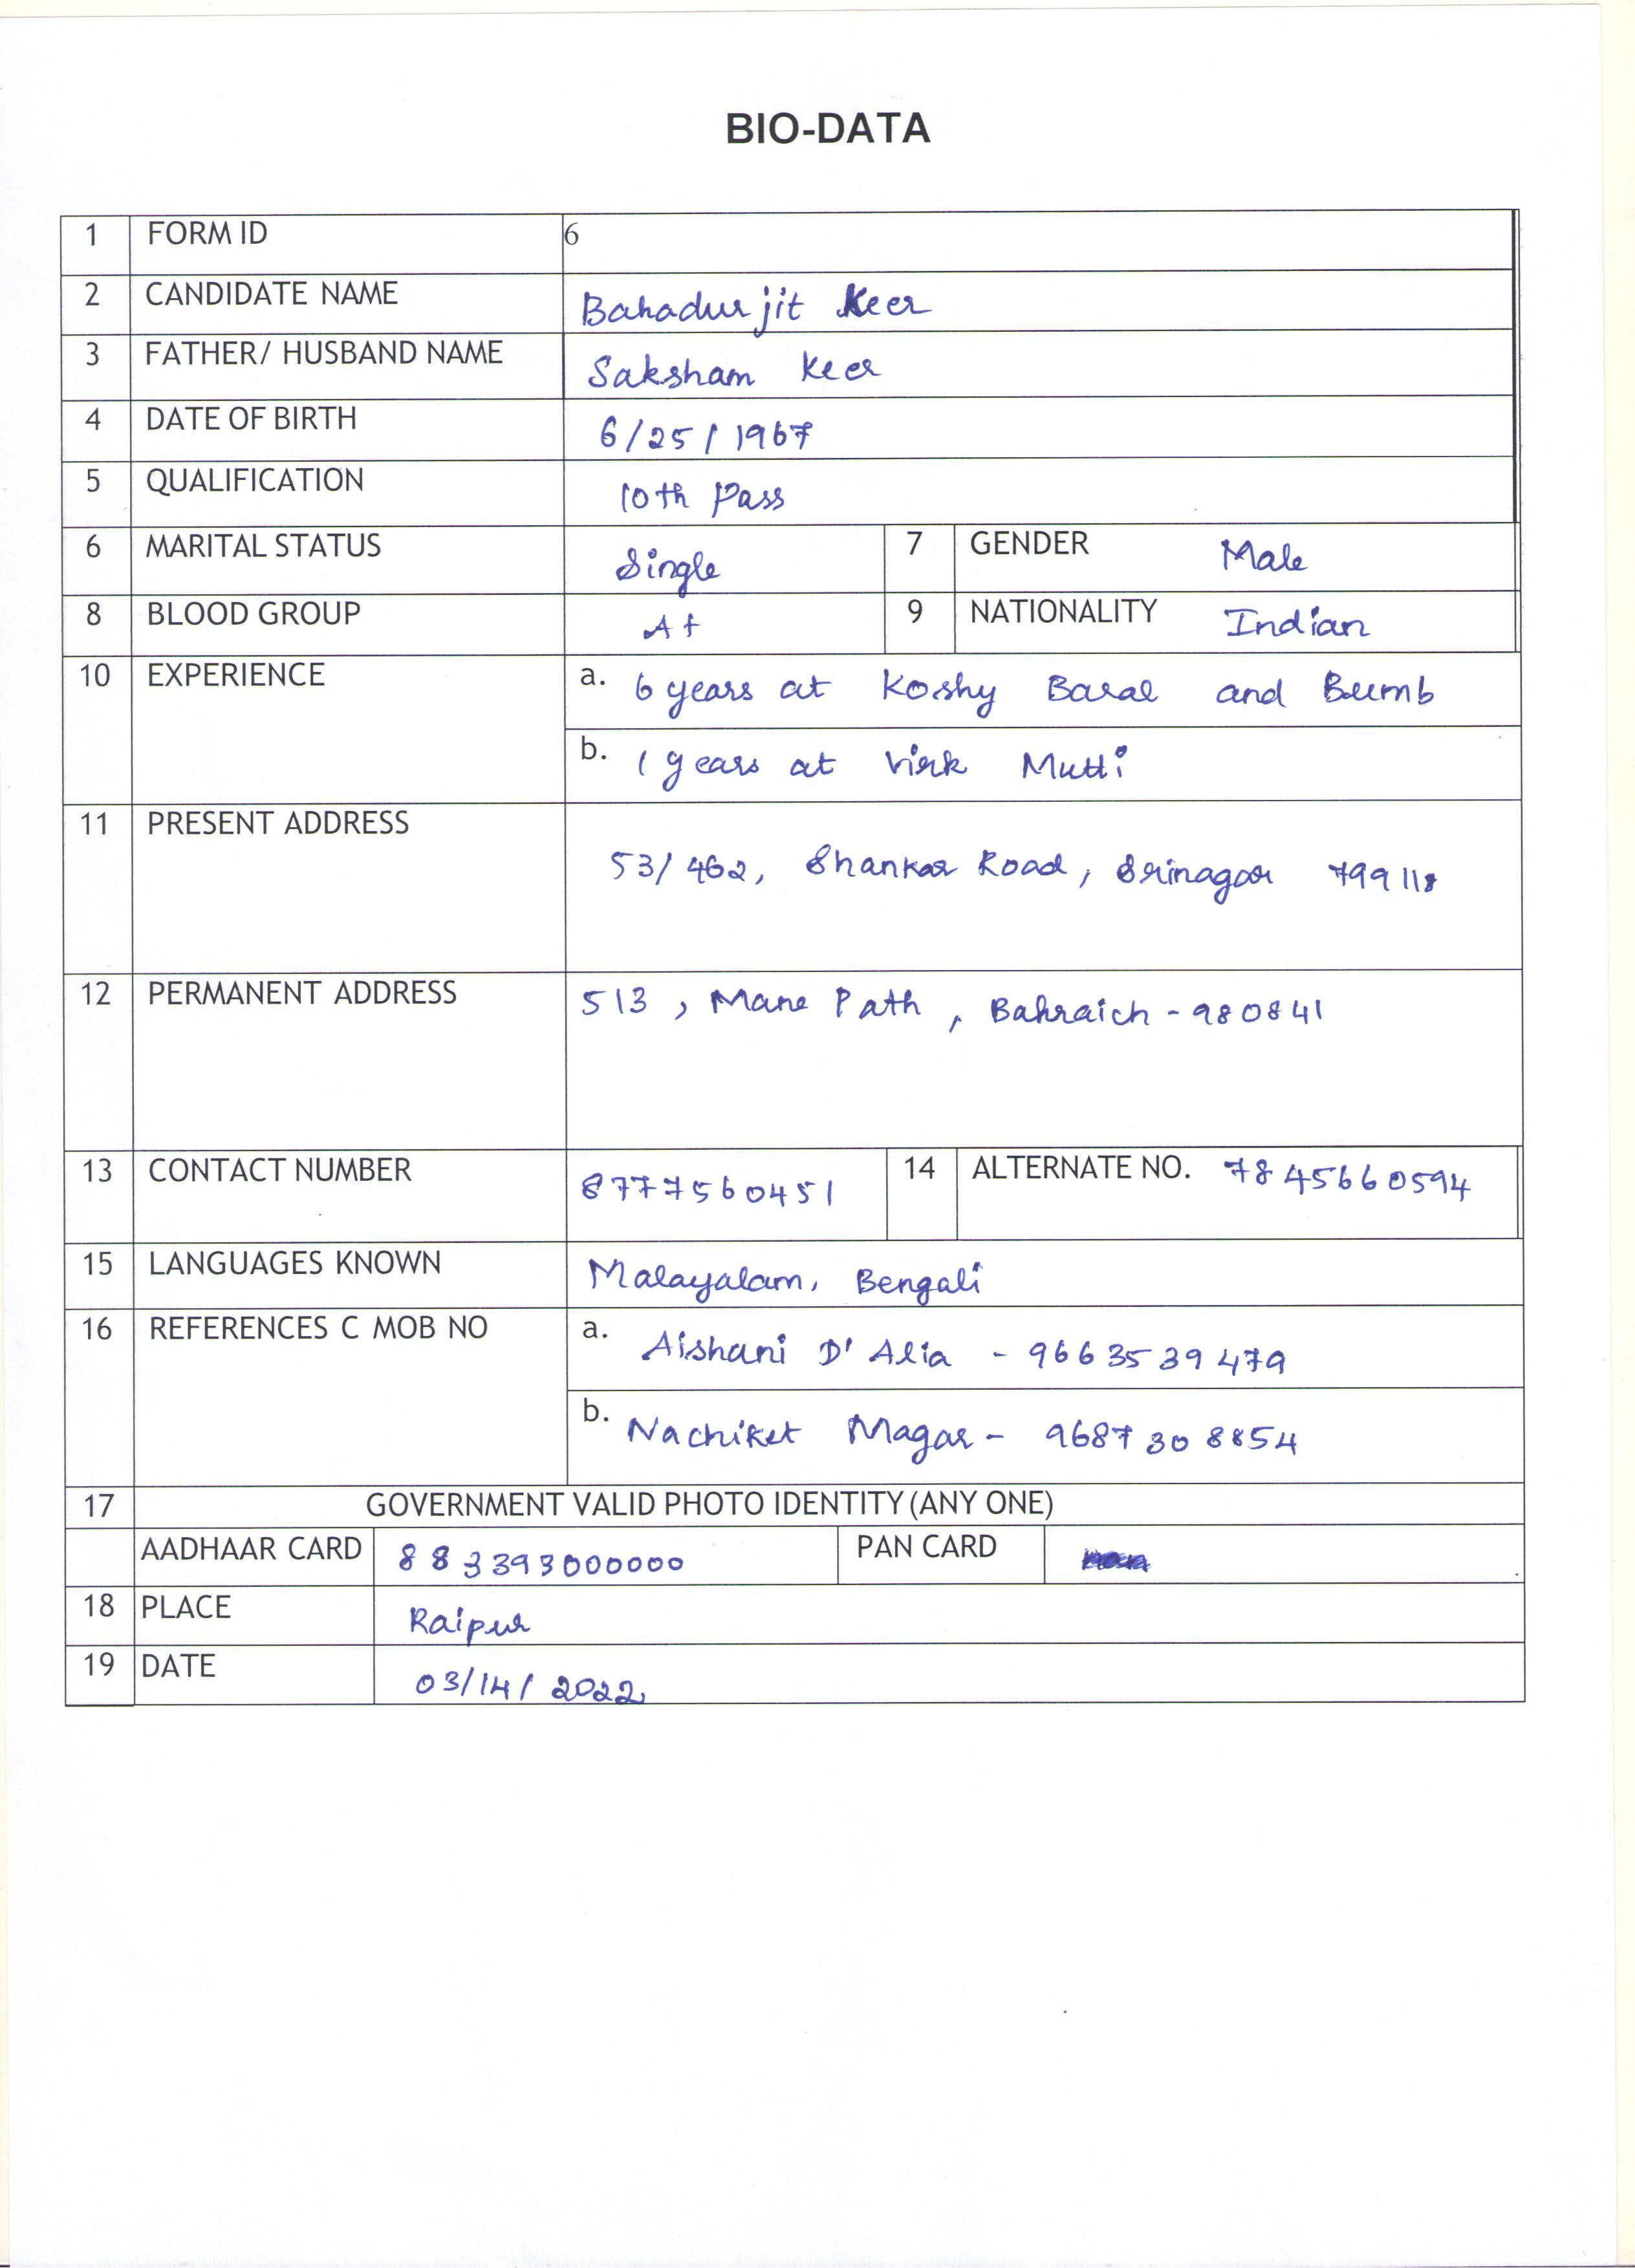 BIO-DATA
1 FORM ID 6
2 CANDIDATE NAME Bahadurjit Keer
3 FATHER/ HUSBAND NAME Saksham Keer
4 DATE OF BIRTH 6/25/1967
5 QUALIFICATION 10th Pass
6 MARITAL STATUS Single 7 GENDER Male
8 BLOOD GROUP A+ 9 NATIONALITY Indian
10 EXPERIENCE a. 6 years at Koshy Baral and Bumb
b. 1 years at Virk Mutti
11 PRESENT ADDRESS
53/462, Shankar Road, Srinagar 799118
12 PERMANENT ADDRESS 513, Mane Path, Bahraich - 980841
13 CONTACT NUMBER 8777560451 14 ALTERNATE NO. 7845660594
15 LANGUAGES KNOWN Malayalam, Bengali
16 REFERENCES C MOB NO a. Aishani D'Alia - 9663539479
b. Nachiket Magar - 9687308854
17 GOVERNMENT VALID PHOTO IDENTITY (ANY ONE)
AADHAAR CARD 883393000000 PAN CARD
18 PLACE Raipur
19 DATE 03/14/2022